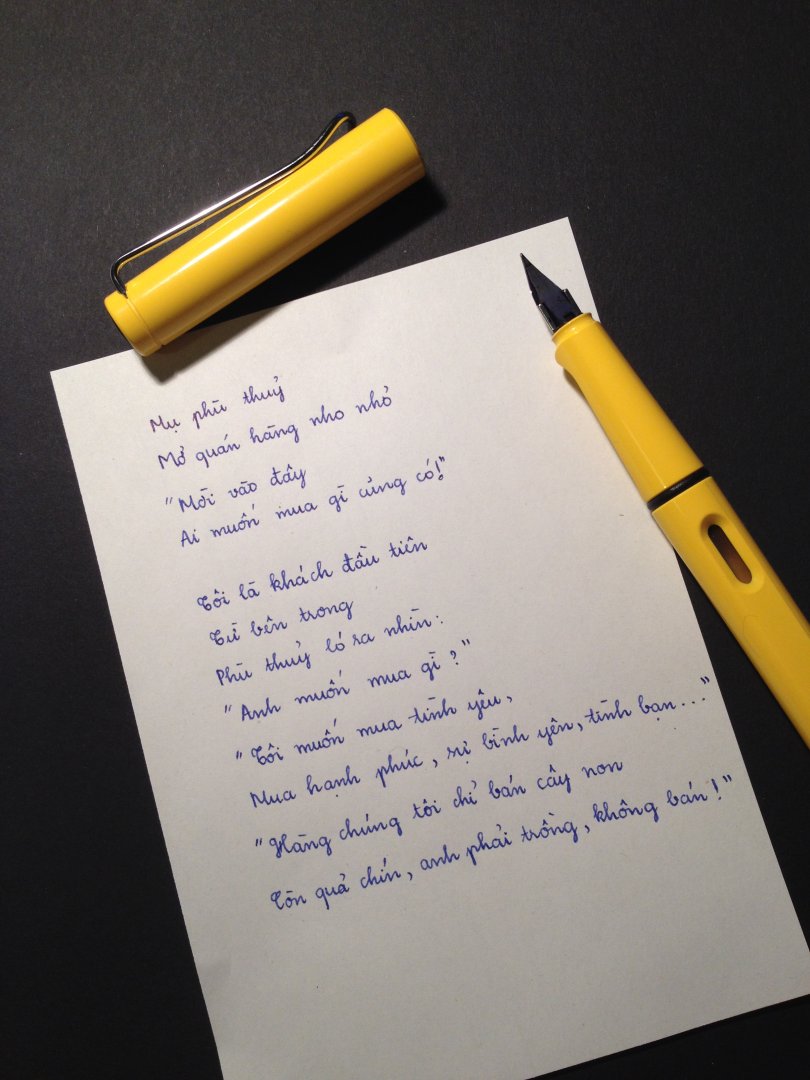 Mụ phù thuỷ
Mở quán hàng nho nhỏ
"Mời vào đây
Ai muốn mua gì cũng có!"
Tôi là khách đầu tiên
Từ bên trong
Phù thuỷ ló ra nhìn:
"Anh muốn mua gì?"
"Tôi muốn mua tình yêu,
Mua hạnh phúc, sự bình yên, tình bạn..."
"Hàng chúng tôi chỉ bán cây non
Còn quả chín, anh phải trồng, không bán!"